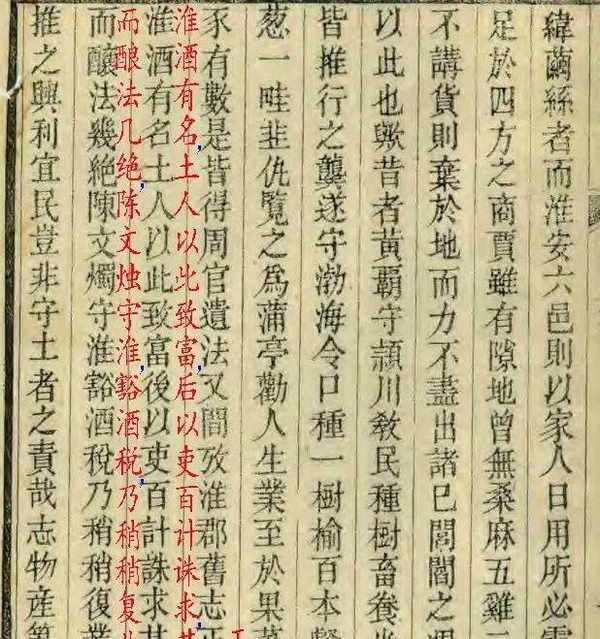 緯繭絲者而淮安六邑則以家人日用所必需
足於四方之商賈雖有隙地曾無桑麻五雞二
不講貨則棄於地而力不盡出諸巳閭閻之
以此也歟昔者黃霸守潁川敎民種樹畜養
皆推行之龔遂守渤海令口種一樹榆百本
葱一畦韭仇覽之爲蒲亭勸人生業至於果菜
豕有數是皆得周官遺法又間攷淮郡舊志正
淮酒有名,土人以此致富,后以吏百计诛求其
淮酒有名土人以此致富後以吏百計誅求其
而酿法几绝,陈文烛守淮,豁酒税,乃稍稍复业
而釀法幾絕陳文燭守淮豁酒稅乃稍稍復業
推之興利宜民豈非守土者之責哉志物産第